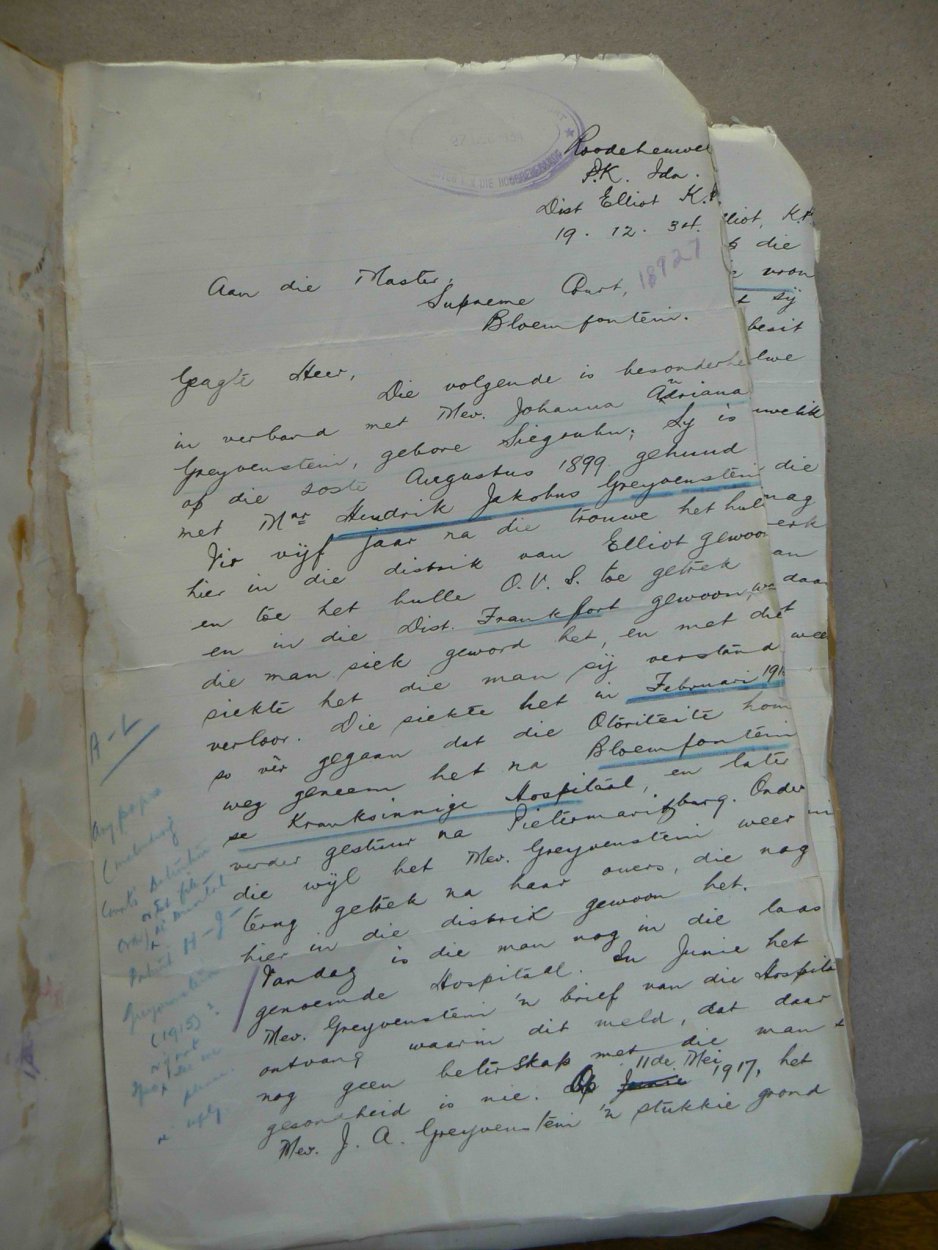 27 DEC 1934
DIE HOOGGEREGSHOF
Roodeheuwel
P.K. Ida.
Dist Elliot K.P.
19. 12. 34.
18927
Aan die Master,
Supreme Court,
Bloemfontein.
Geagte Heer,
Die volgende is besonderhe
in verband met Mev. Johanna Adriana
Greyvenstein, gebore Siegruhn; Sy is
op die 20ste Augustus 1899 gehuud
met Mnr Hendrik Jakobus Greyvenstein
Vir vijf jaar na die trouwe het hul
hier in die distrik van Elliot gewoo
en toe het hulle O.V.S. toe getrek
en in die Dist. Frankfort gewoon, wa
die man siek geword het, en met die
siekte het die man sij verstand
verloor. Die siekte het in Februari 191
so vêr gegaan dat die Otoriteite hom
weg geneem het na Bloemfontein
se Kranksinnige Hospitaal, en later
verder gestuur na Pietermaritzburg. Onder
die wyl het Mev. Greyvenstein weer
terug getrek na haar ouers, die nog
hier in die distrik gewoon het.
Vandag is die man nog in die laas
genoemde Hospitaal. In Junie het
Mev. Greyvenstein 'n brief van die Hospita
ontvang waarin dit meld, dat daar
nog geen beterskap met die man s
gesondheid is nie. Op Junie 11de Mei 1917, het
Mev. J. A. Greyvenstein 'n stukkie grond
A-L
any papers
Greyvenstein
(1915)?
lliot, K.P.
die
vrou
sy
besit
die
mag
erk
an
daar
wee